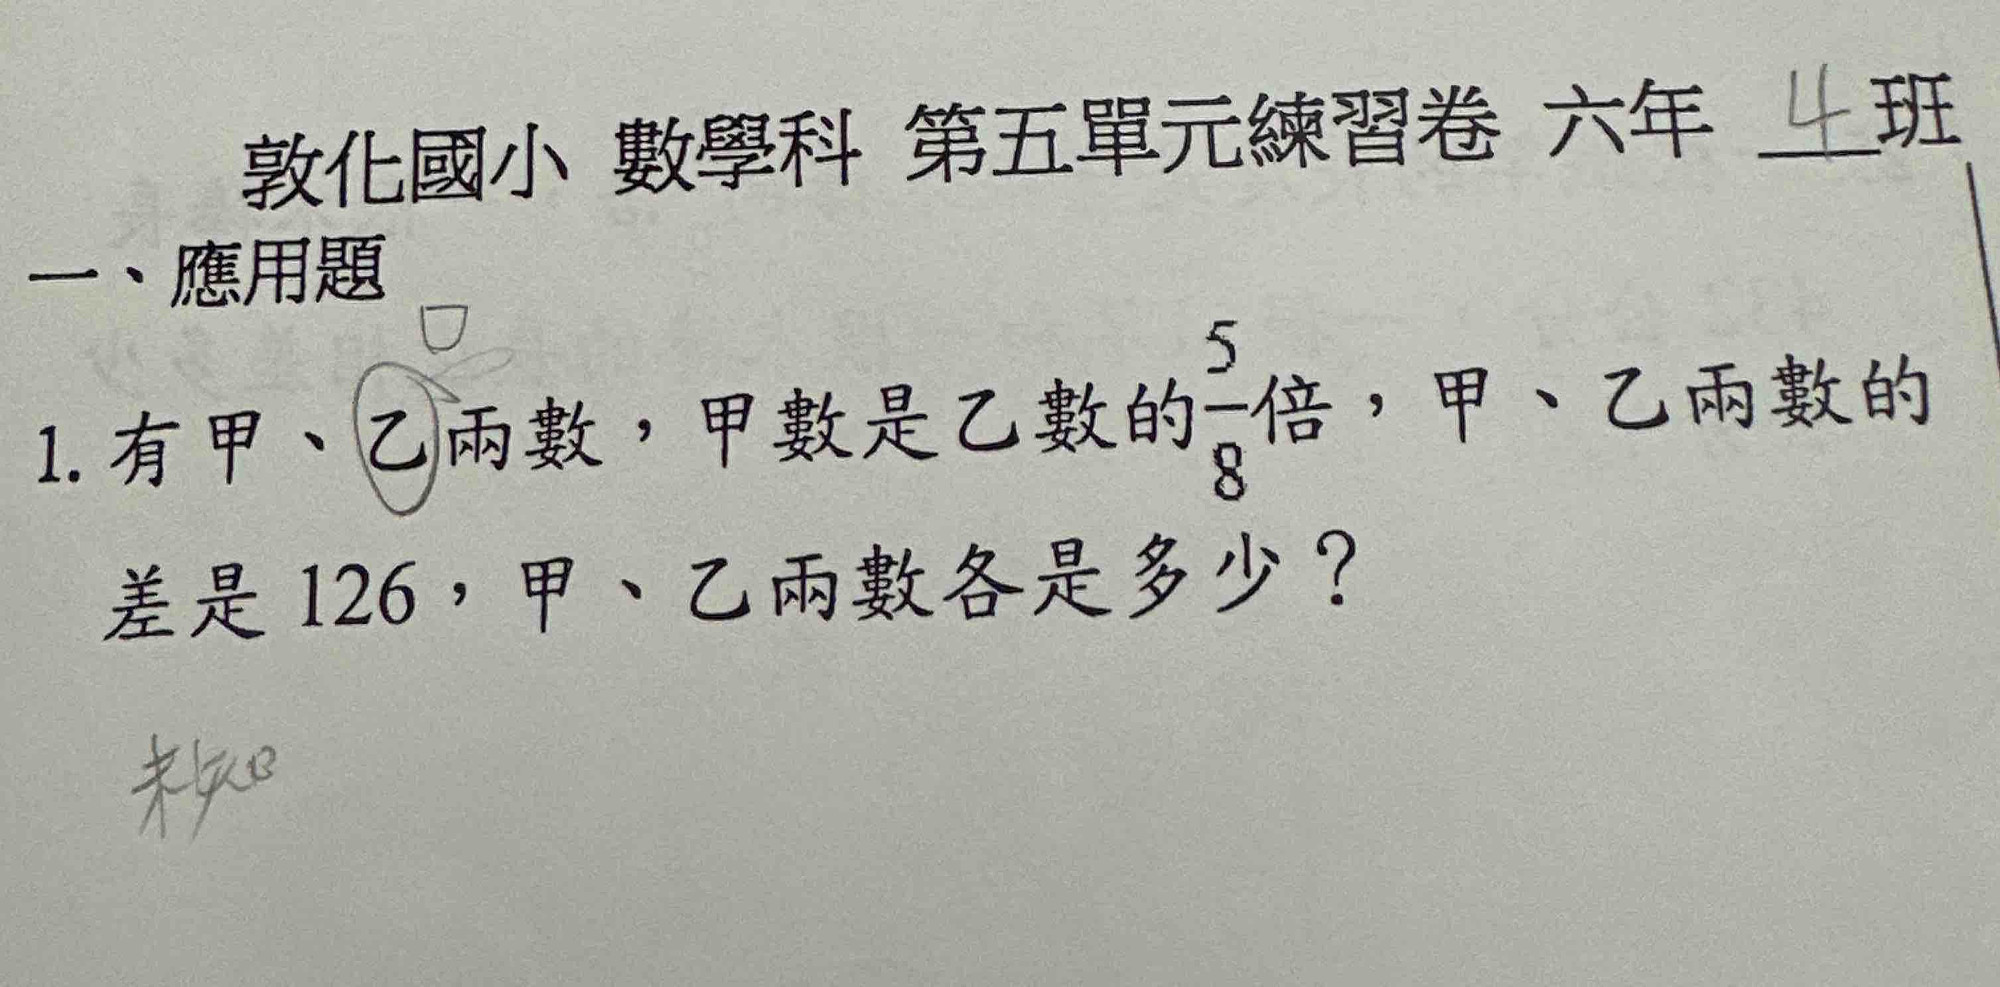 敦化國小 數學科 第五單元練習卷 六年 4 班
一、應用題
1. 有甲、乙兩數，甲數是乙數的5/8倍，甲、乙兩數的
差是 126，甲、乙兩數各是多少？
未知